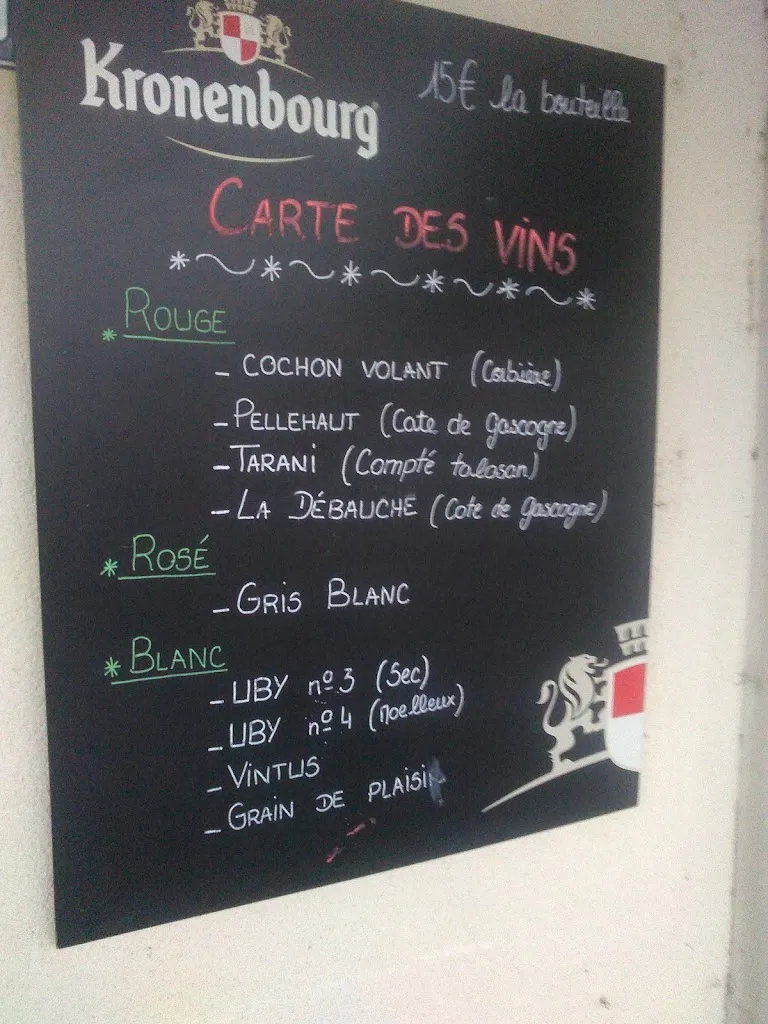 Kronenbourg
15€ la bouteille
CARTE DES VINS
* ROUGE
- COCHON VOLANT (Corbière)
- PELLEHAUT (Cote de Gascogne)
- TARANI (Compté tolosan)
- LA DÉBAUCHE (Cote de Gascogne)
* ROSÉ
- GRIS BLANC
* BLANC
- UBY nº3 (Sec)
- UBY nº4 (Moelleux)
- VINTUS
- GRAIN DE PLAISIR